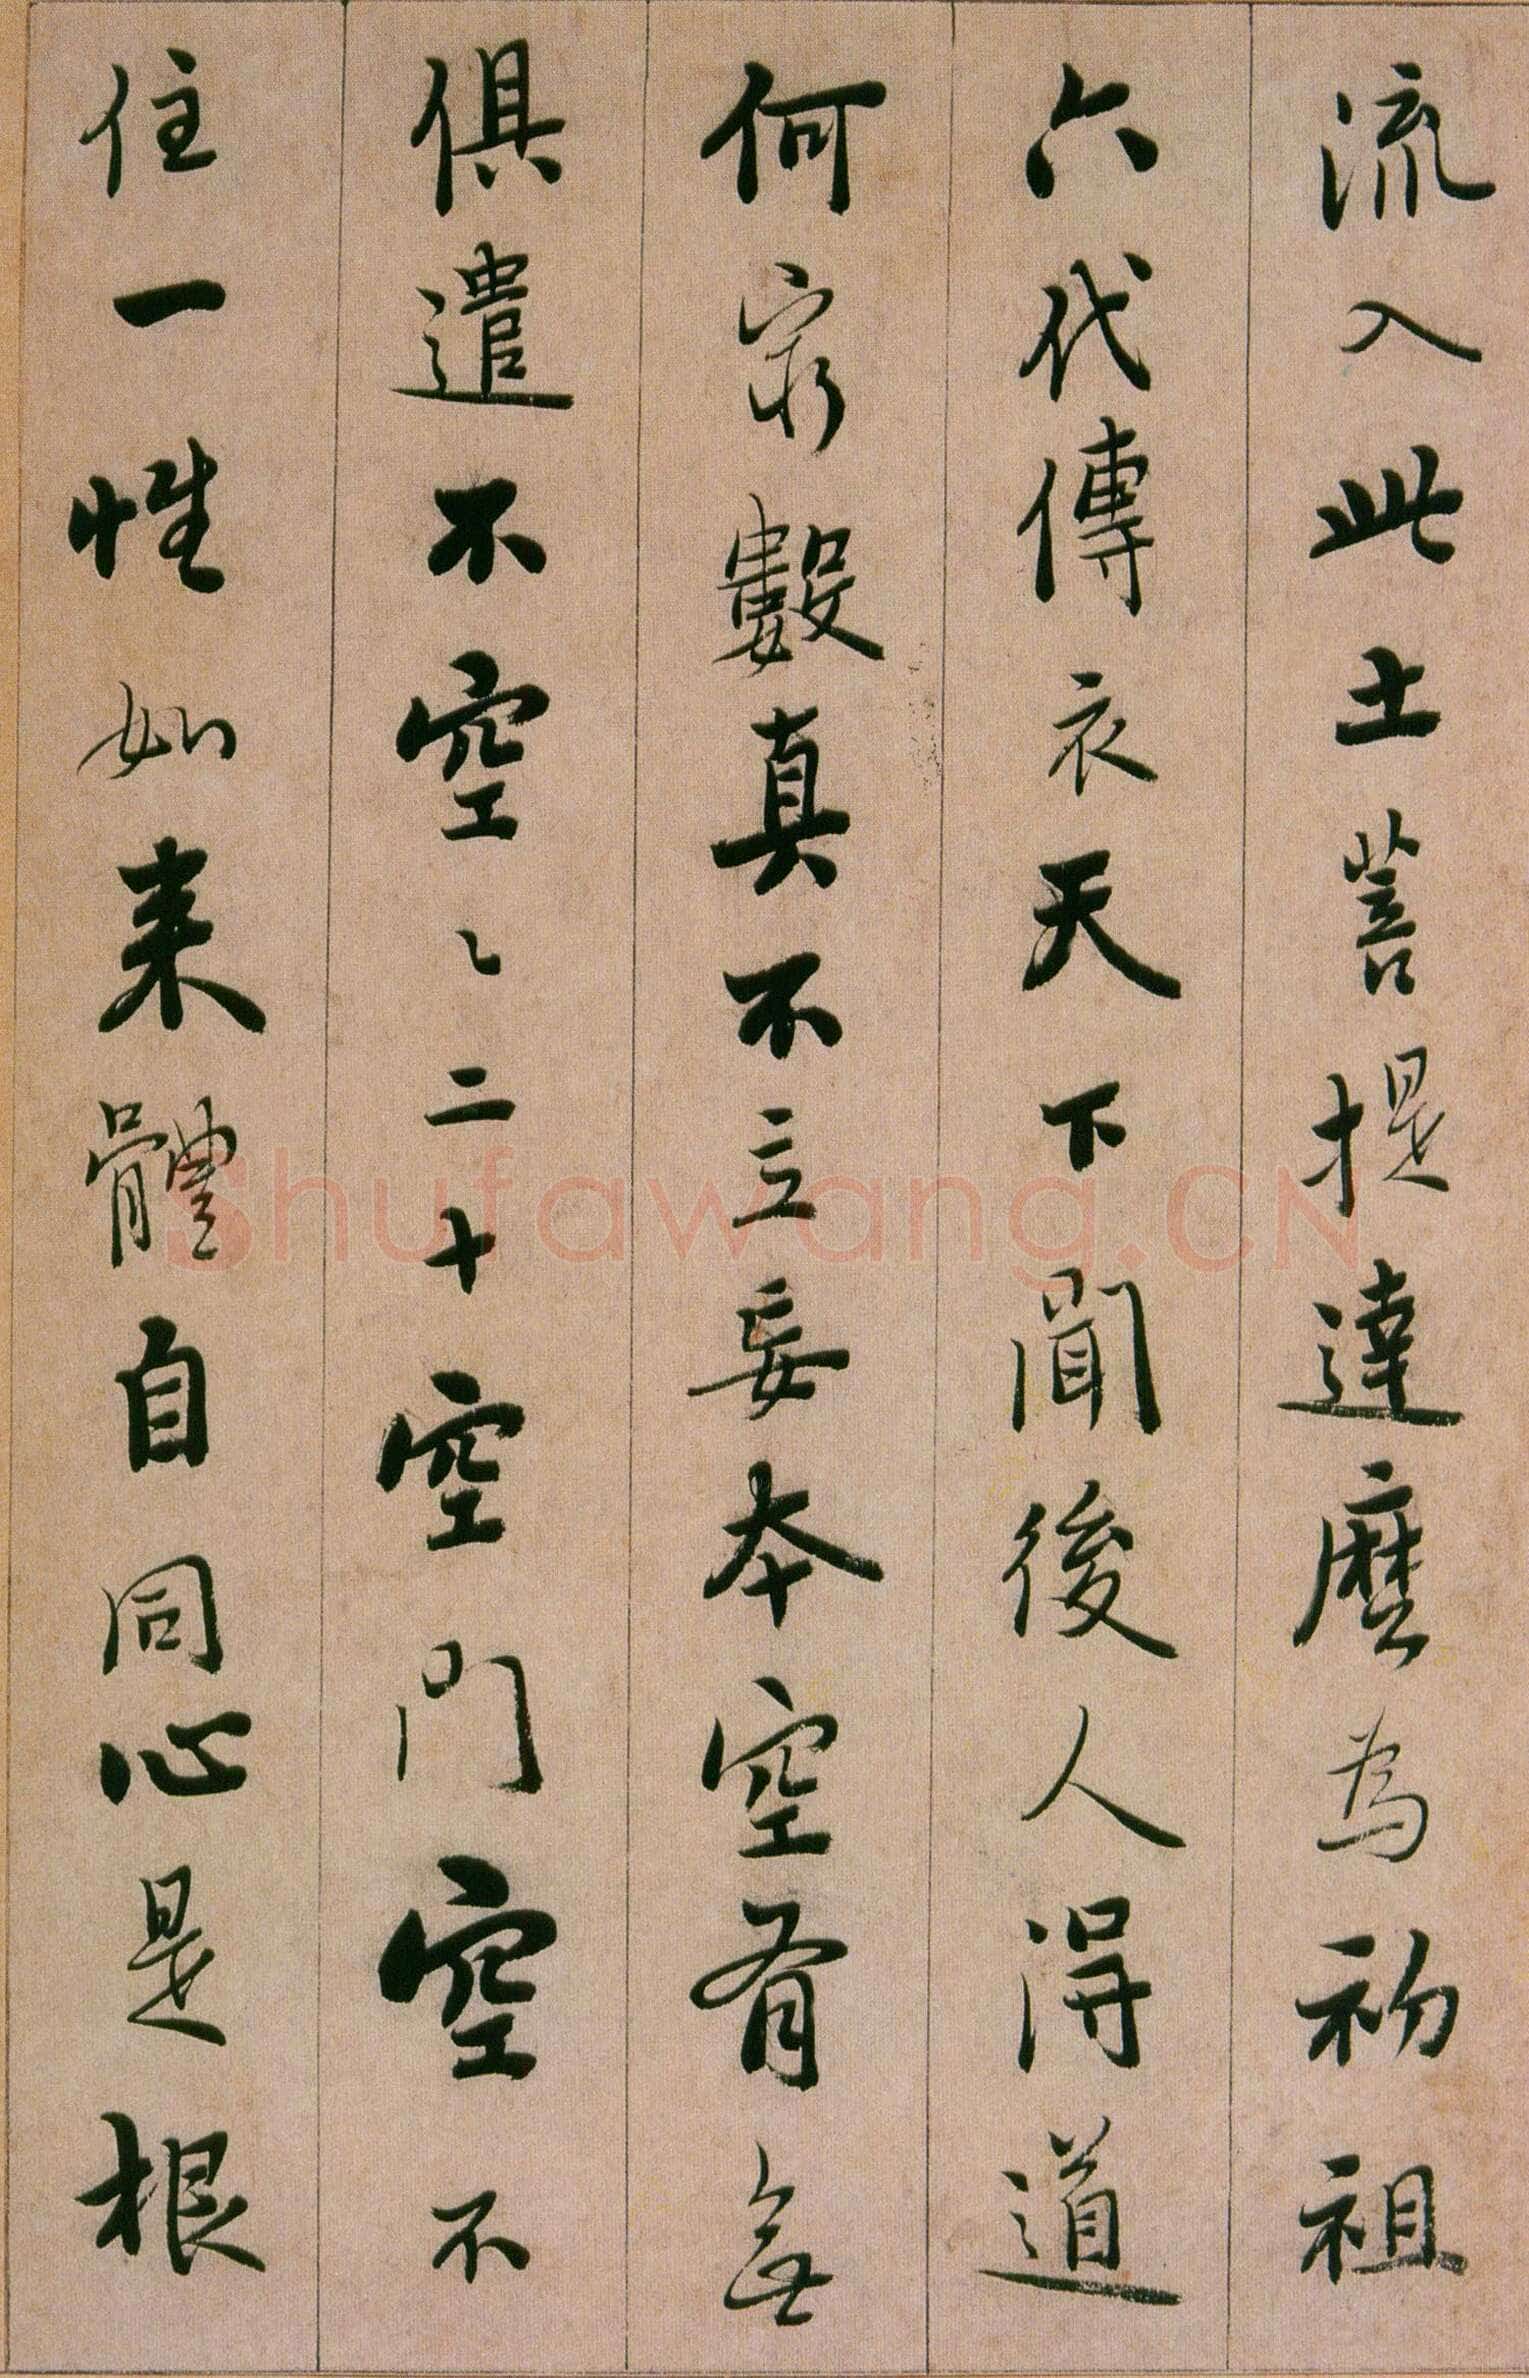 流入此土菩提達磨為初祖
六代傳衣天下聞後人得道
何窮數真不立妄本空有無
俱遣不空空〻二十空門空不
住一性如来體自同心是根
Shufawang.CN